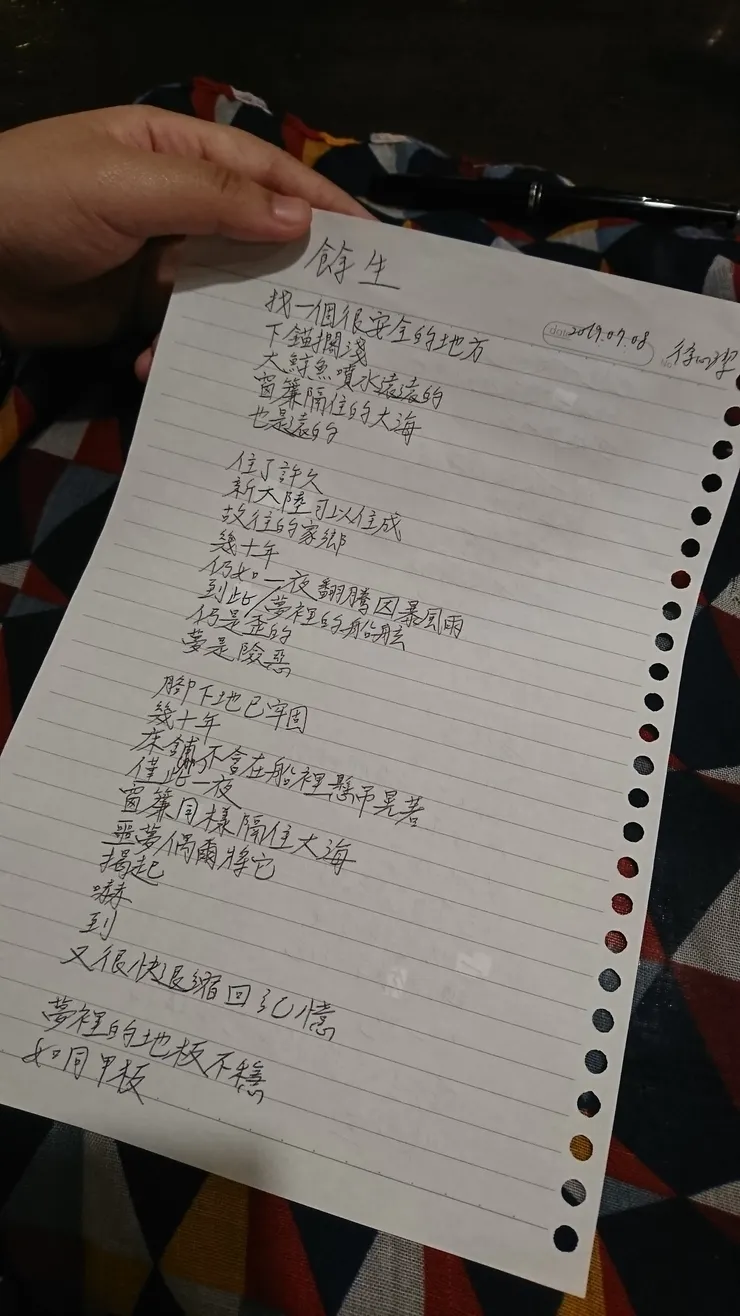 餘生
date 2019.07.08
No.
找一個很安全的地方
下錨擱淺
大鯨魚噴水遠遠的
窗簾隔住的大海
也是遠的
住了許久
新大陸可以住成
故往的家鄉
幾十年
仍如一夜翻騰因暴風雨
到此/夢裡的船舷
仍是歪的
夢是險惡
腳下地已牢固
幾十年
床鋪不會在船裡懸吊晃著
僅此一夜
窗簾同樣隔住大海
噩夢偶爾將它
揭起
嚇
到
又很快退縮回記憶
夢裡的地板不穩
如同甲板